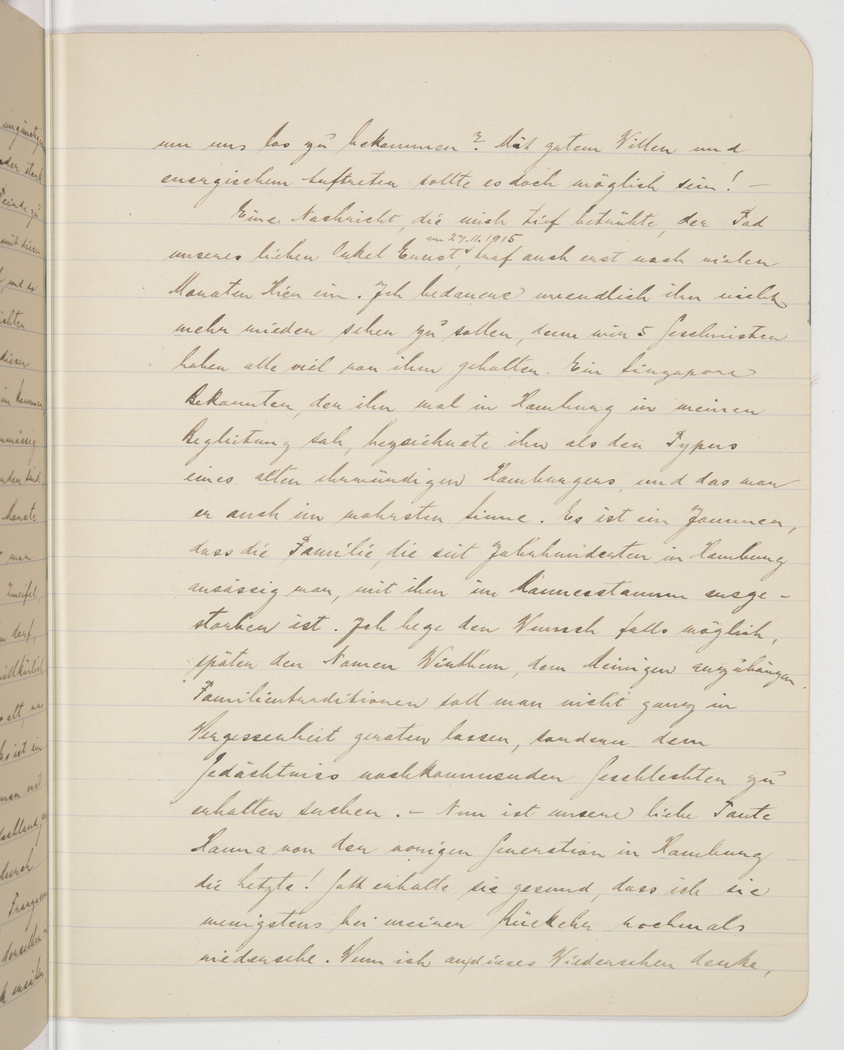 um uns los zu bekommen? Mit gutem Willen und
energischem Auftreten sollte es doch möglich sein! –
Eine Nachricht, die mich tief betrübte, der Tod
am 27.11.1915
unseres lieben Onkel Ernst, traf auch erst nach vielen
Monaten hier ein. Ich bedauere unendlich ihn nicht
mehr wieder sehen zu sollen, denn wir 5 Geschwister
haben alle viel von ihm gehalten. Ein Singapore
Bekannter, der ihn mal in Hamburg in meiner
Begleitung sah, bezeichnete ihn als den Typus
eines alten ehrwürdigen Hamburgers, und das war
er auch im wahrsten Sinne. Es ist ein Jammer,
dass die Familie, die seit Jahrhunderten in Hamburg
ansässig war, mit ihm im Mannesstamm ausge-
storben ist. Ich hege den Wunsch falls möglich,
später den Namen Winthem, dem Meinigen anzuhängen.
Familientraditionen soll man nicht ganz in
Vergessenheit geraten lassen, sondern dem
Gedächtniss nachkommender Geschlechter zu
erhalten suchen. – Nun ist unsere liebe Tante
Hanna von der vorigen Generation in Hamburg
die Letzte! Gott erhalte sie gesund, dass ich sie
wenigstens bei meiner Rückkehr nochmals
wiedersehe. Wenn ich an dieses Wiedersehen denke,